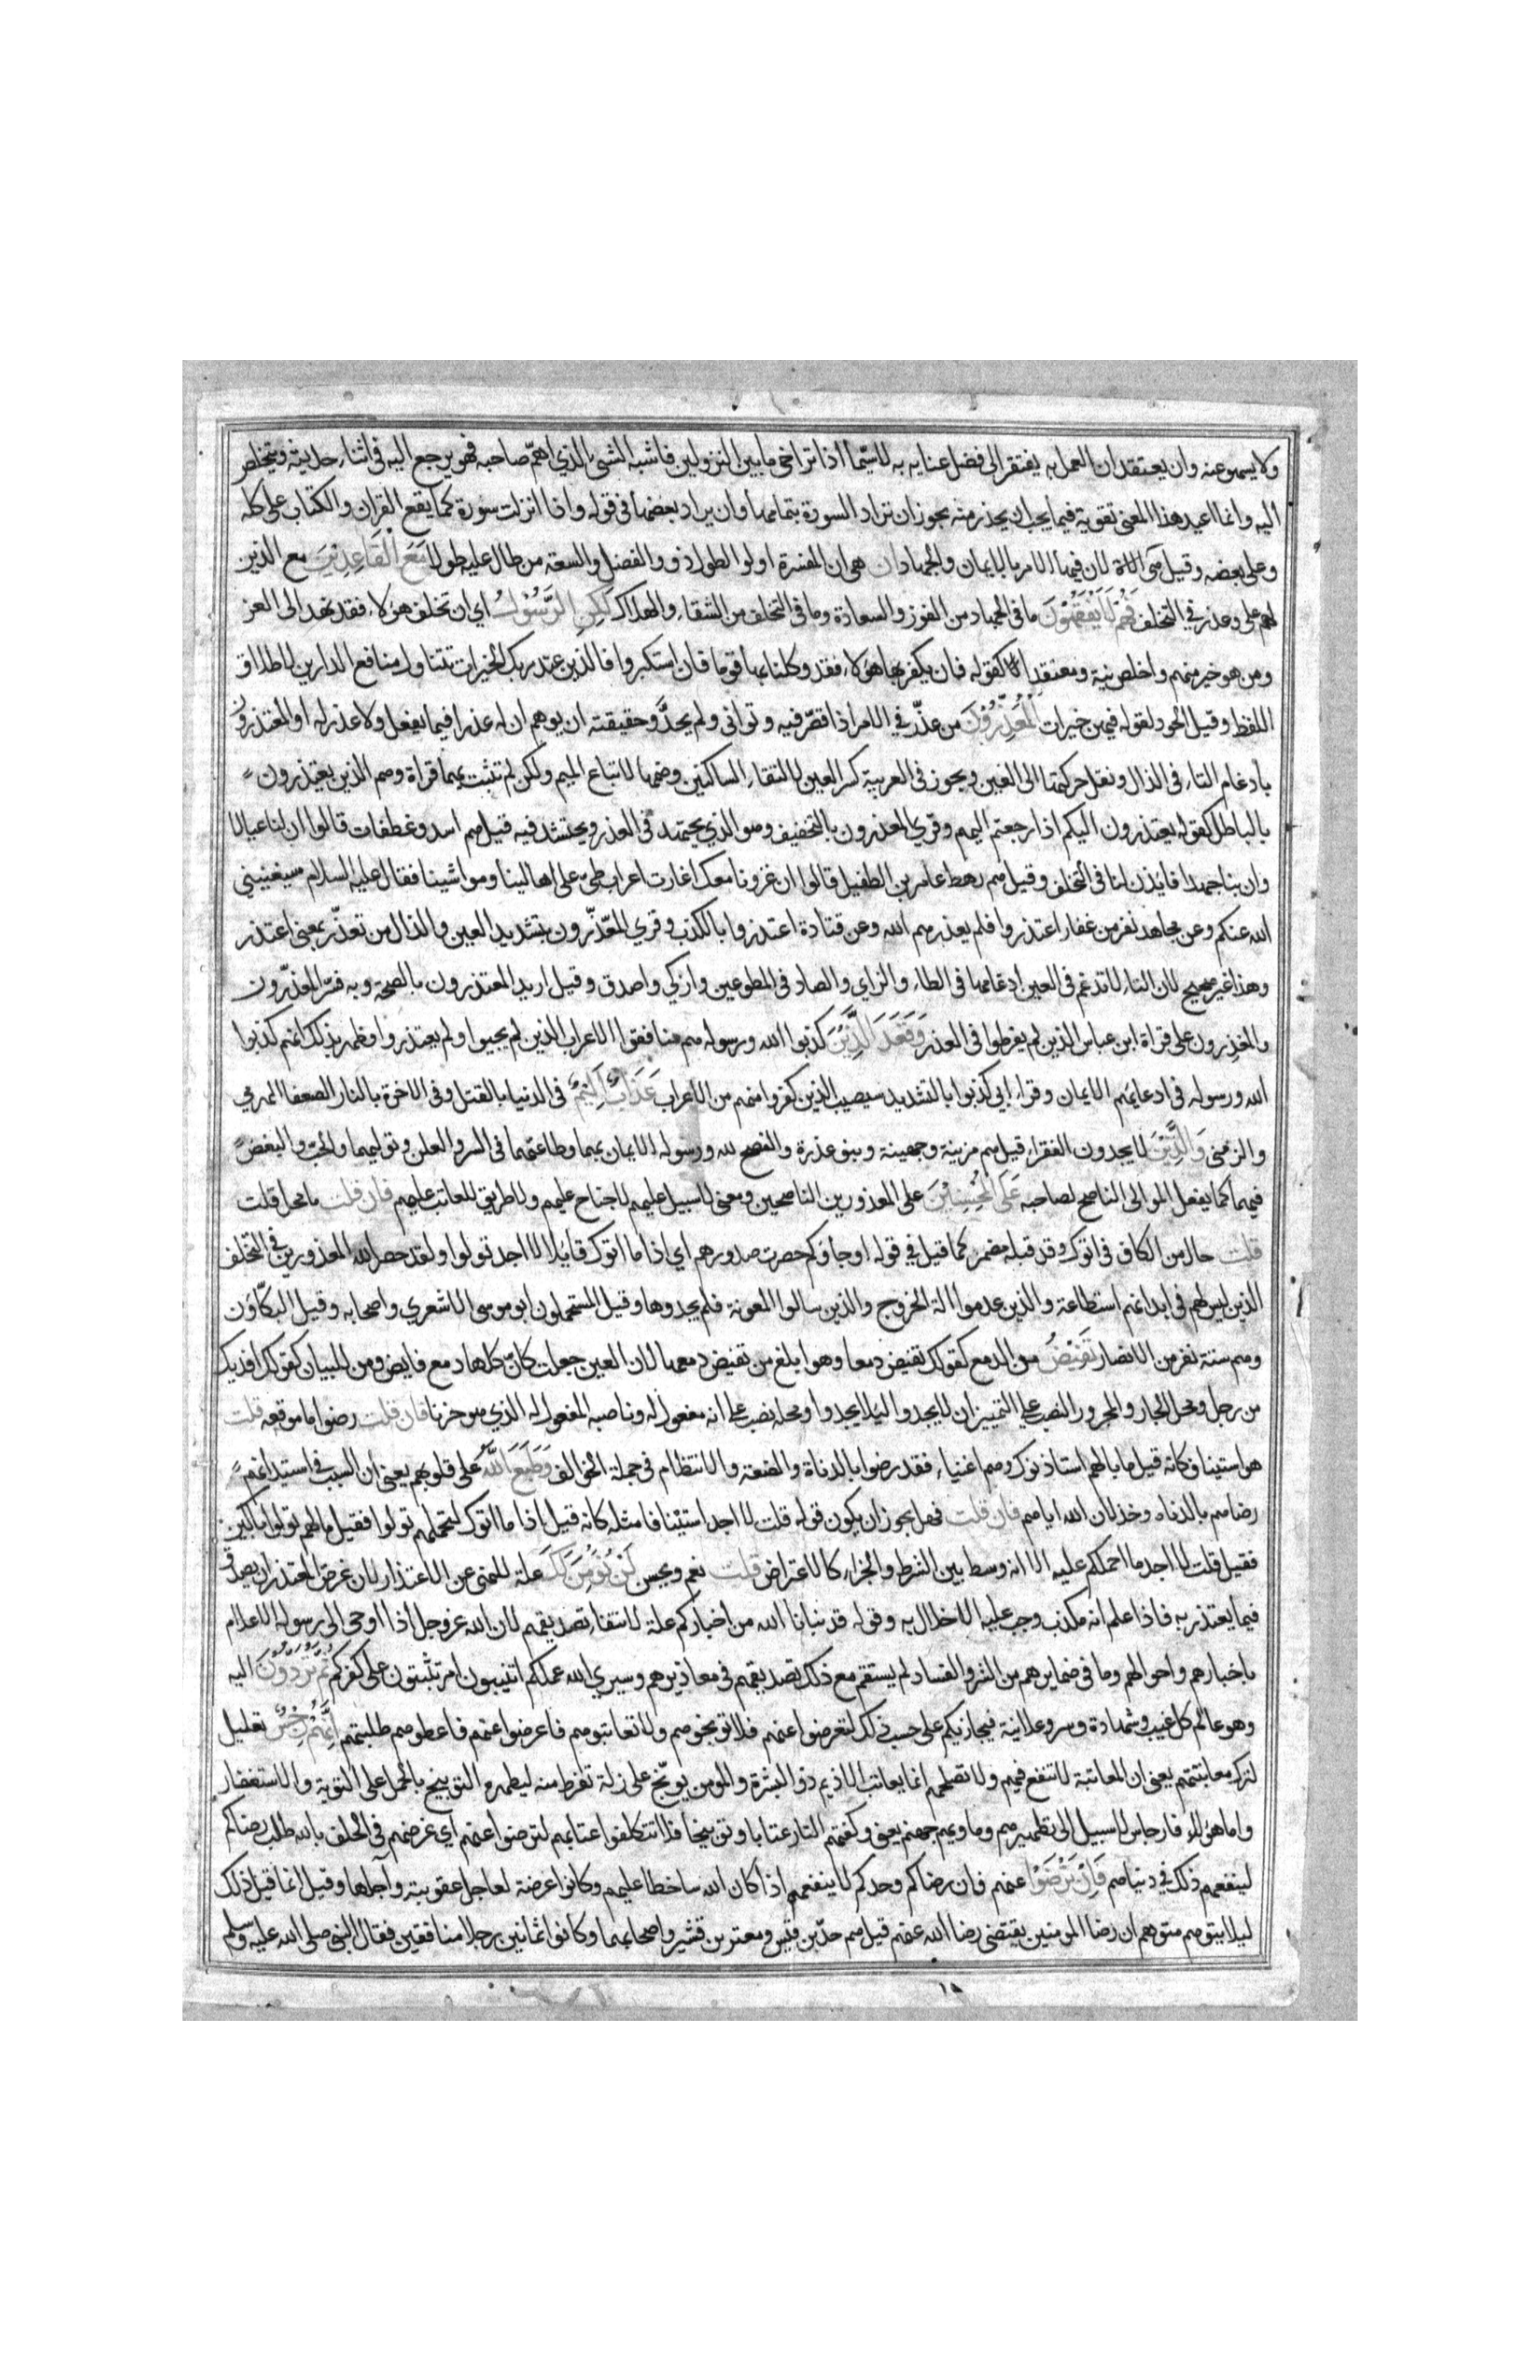 ولا يسهو عنه وان يعتقد ان العمل به يفتقر الى فضل عناية به لاسيما اذا تراخى ما بين النزولين فاشبه الشئ الذي اهمّ صاحبه فهو يرجع اليه في اثناء حديثه ويتخلص
اليه وانما اعيد هذا المعنى تقوية فيما يجب ان يحذر منه يجوز ان تراد السورة بتمامها وان يراد بعضها في قوله واذا انزلت سورة كما يقع القران والكتاب على كله
وعلى بعضه وقيل هي لان فيها الامر بالايمان والجهاد ان هي ان المفسرة اولوا الطول ذووا الفضل والسعة من طال عليه طولا مَعَ الْقَاعِدِيْنَ مع الذين
لهم على وعذر في التخلف فَهُمْ لَا يَفْقَهُوْنَ ما في الجهاد من الفوز والسعادة وما في التخلف من الشقاء والهلاك لَكِنِ الرَّسُوْلُ اي ان تخلف هؤلاء فقد نهد الى الغز
ومن هو خير منهم واخلص نية ومعتقدا كقوله فان يكفر بها هؤلاء فقد وكلنا بها قوما فان استكبروا فالذين عند ربك الخيرات تتناول منافع الدارين لاطلاق
اللفظ وقيل الحور لقوله فيهن خيرات الْمُعَذِّرُوْنَ من عذّر في الامر اذا قصّر فيه وتوانى ولم يجدّ وحقيقته ان يوهم ان له عذرا فيما يفعل ولا عذر له او المعتذرون
بادغام التاء في الذال ونقل حركتها الى العين ويجوز في العربية كسر العين لالتقاء الساكنين وضمها لاتباع الميم ولكن لم تثبت بهما قراة وهم الذين يعتذرون
بالباطل كقوله يعتذرون اليكم اذا رجعتم اليهم وقري المعذرون بالتخفيف وهو الذي يجتهد في العذر ويحتشد فيه قيل هم اسد وغطفان قالوا ان لنا عيالا
وان بنا جهدا فايذن لنا في التخلف وقيل هم رهط عامر بن الطفيل قالوا ان غزونا معك اغارت اعراب طي على اهالينا ومواشينا فقال عليه السلام سيغنيني
الله عنكم وعن مجاهد نفر من غفار اعتذروا فلم يعذرهم الله وعن قتادة اعتذروا بالكذب وقري المعّذّرون بتشديد العين والذال من تعذّر بمعنى اعتذر
وهذا غير صحيح لان التاء لا تدغم في العين ادغامها في الطاء والزاي والصاد في المطوعين وازكي واصدق وقيل اريد المعتذرون بالصحة وبه فسّر المعذّرون
والمعْذِرون على قراة ابن عباس الذين لم يفرطوا في العذر وَقَعَدَ الَّذِيْنَ كذبوا الله ورسوله هم منافقوا الاعراب الذين لم يجيوا ولم يعتذروا وظهر بذلك انهم كذبوا
الله ورسوله في ادعائهم الايمان وقرا ابي كذبوا بالتشديد سيصيب الذين كفروا منهم من الاعراب عَذَابٌ اَلِيْمٌ في الدنيا بالقتل وفي الاخرة بالنار الضعفا الهرمي
والزمنى وَالَّذِيْنَ لا يجدون الفقراء قيل هم مزينة وجهينة وبنو عذرة والنصح لله ورسوله الايمان بهما وطاعتهما في السر والعلن وتوليهما والحبّ والبغض
فيهما كما يفعل الموالى الناصح لصاحبه عَلَى الْمُحْسِنِيْنَ على المعذورين الناصحين ومعنى لا سبيل عليهم لا جناح عليهم ولا طريق للعاتب عليهم فان قلت ما محل قلت
قلت حال من الكاف في اتوك وقد قبله مضمر كما قيل في قوله او جاؤكم حصرت صدورهم اي اذا ما اتوك قايلا لا اجد تولوا ولقد حصر الله المعذورين في التخلف
الذين ليس لهم في ابدانهم استطاعة والذين عدموا الة الخروج والذين سالوا المعونة فلم يجدوها وقيل المستحملون ابو موسى الاشعري واصحابه وقيل البكّاؤن
وهم ستة نفر من الانصار تَفِيْضُ من الدمع كقولك تفيض دمعا وهو ابلغ من تفيض دمعها لان العين جعلت كانّ كلها دمع فايض ومن للبيان كقولك افديك
من رجل ومحل الجار والمجرور النصب على التمييز ان لا يجدوا ليلا يجدوا ومحله نصب على انه مفعول له وناصبه المفعول له الذي هو حزنا فان قلت رضوا ما موقعه قلت
هو استيناف كانه قيل ما بالهم استاذنوك وهم اغنياء فقد رضوا بالدناة والضعة والانتظام في جملة الخوالف وَطَبَعَ اللّٰهُ على قلوبهم يعني ان السبب في استيذانهم
رضاهم بالدناه وخذلان الله اياهم فان قلت فهل يجوز ان يكون قوله قلت لا اجد استيْنافا مثله كانه قيل اذا ما اتوك لتحملهم تولوا فقيل ما لهم تولوا باكين
فقيل قلت لا اجد ما احملكم عليه الا انه وسط بين الشرط والجزاء كالاعتراض قلت نعم ويحسن لَنْ نُّؤْمِنَ لَكُمْ علة للنهي عن الاعتذار لان غرض المعتذر ان يصدق
فيما يعتذر به فاذا علم انه مكذب وجب عليه الاخلال به وقوله قد نبانا الله من اخباركم علة لانتفاء تصديقهم لان الله عز وجل اذا اوحى الى رسوله الاعلام
باخبارهم واحوالهم وما في ضمايرهم من الشر والفساد لم يستقم مع ذلك تصديقهم في معاذيرهم وسيرى الله عملكم اتنيبون ام تثبتون على كفركم ثُمَّ تُرَدُّوْنَ اليه
وهو عالم كل غيب وشهادة وسر وعلانية فيجازيكم على حسب ذلك لتعرضوا عنهم فلا توبخوهم ولا تعاتبوهم فاعرضوا عنهم فاعطوهم طلبتهم اِنَّهُمْ رِجْسٌ تعليل
لترك معاتبتهم يعني ان المعاتبة لا تنفع فيهم ولا تصلحهم انما يعاتب الاديم ذو البشرة والمومن يوبّخ على زلة تفرط منه ليطهره التوبيخ بالحمل على التوبة والاستغفار
واما هؤلاء فارجاس لا سبيل الى تطهيرهم وماويهم جهنم يعني وكفتهم النار عتابا وتوبيخا فلا تتكلفوا عتابهم لترضوا عنهم اي غرضهم في الحلف بالله طلب رضاكم
لينفعهم ذلك في دنياهم فَاِنْ تَرْضَوْا عنهم فان رضاكم وحدكم لا ينفعهم اذا كان الله ساخطا عليهم وكانوا عرضة لعاجل عقوبته وآجلها وقيل انما قيل ذلك
ليلا يتوهم متوهم ان رضا المومنين يقتضي رضا الله عنهم قيل هم جدّ بن قيس ومعتب بن قشير واصحابهما وكانوا ثمانين رجلا منافقين فقال النبي صلى الله عليه وسلم